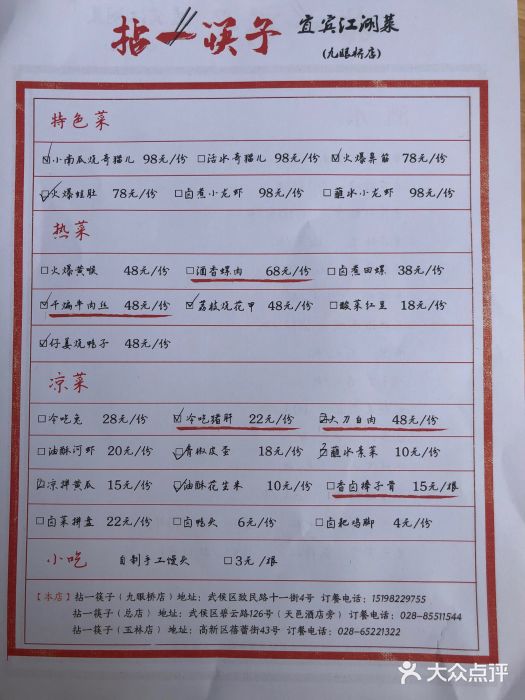 拈一筷子 宜宾江湖菜
(九眼桥店)
特色菜
☑小南瓜烧哥猫儿 98元/份 □活水哥猫儿 98元/份 ☑火爆鼻筋 78元/份
☑火爆蛙肚 78元/份 □卤煮小龙虾 98元/份 □蘸水小龙虾 98元/份
热菜
□火爆黄喉 48元/份 □酒香螺肉 68元/份 □卤煮田螺 38元/份
☑干煸牛肉丝 48元/份 ☑荔枝烧花甲 48元/份 □酸菜红豆 18元/份
☑仔姜烧鸭子 48元/份
凉菜
□冷吃兔 28元/份 ☑冷吃猪肝 22元/份 ☑大刀白肉 48元/份
□油酥河虾 20元/份 ☑青椒皮蛋 18元/份 ☑蘸水素菜 10元/份
☑凉拌黄瓜 15元/份 ☑油酥花生米 10元/份 □香卤棒子骨 15元/根
□卤菜拼盘 22元/份 □卤鸭头 6元/份 □卤耙鸡脚 4元/份
小吃 自制手工馒头 □3元/根
【本店】拈一筷子（九眼桥店）地址：武侯区致民路十一街4号 订餐电话：15198229755
拈一筷子（总店）地址：武侯区碧云路126号（天邑酒店旁）订餐电话：028-85511544
拈一筷子（玉林店）地址：高新区蓓蕾街43号 订餐电话：028-65221322
大众点评